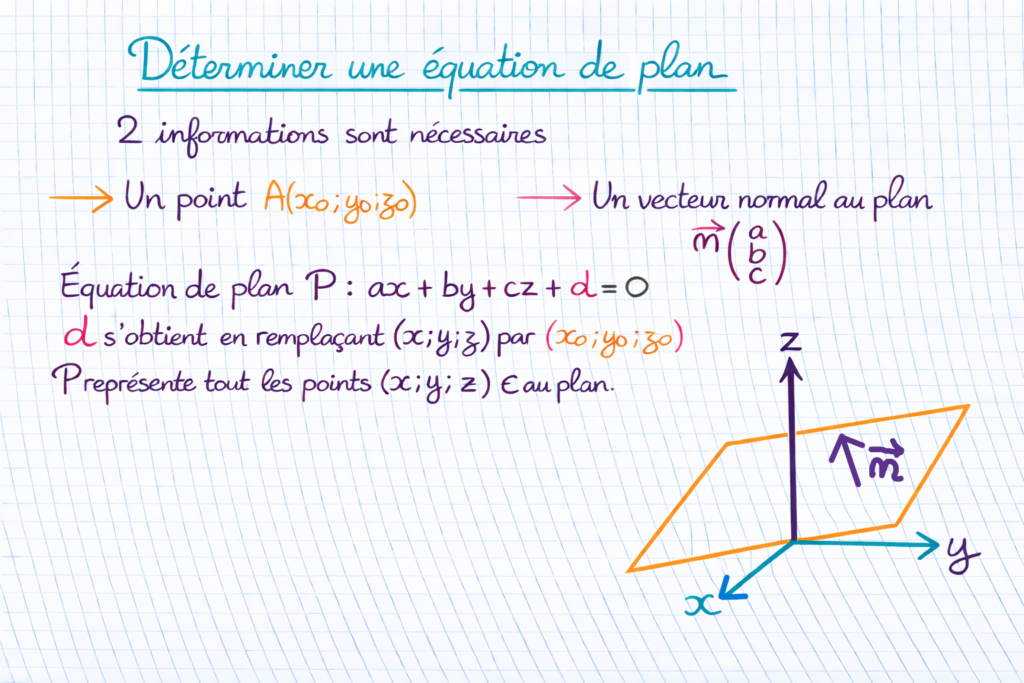 Déterminer une équation de plan
2 informations sont nécessaires
→ Un point A(x₀;y₀;z₀)
→ Un vecteur normal au plan
n⃗ (a
b
c)
Équation de plan P : ax + by + cz + d = 0
d s'obtient en remplaçant (x;y;z) par (x₀;y₀;z₀)
P représente tout les points (x;y; z) ∈ au plan.
z
n⃗
y
x